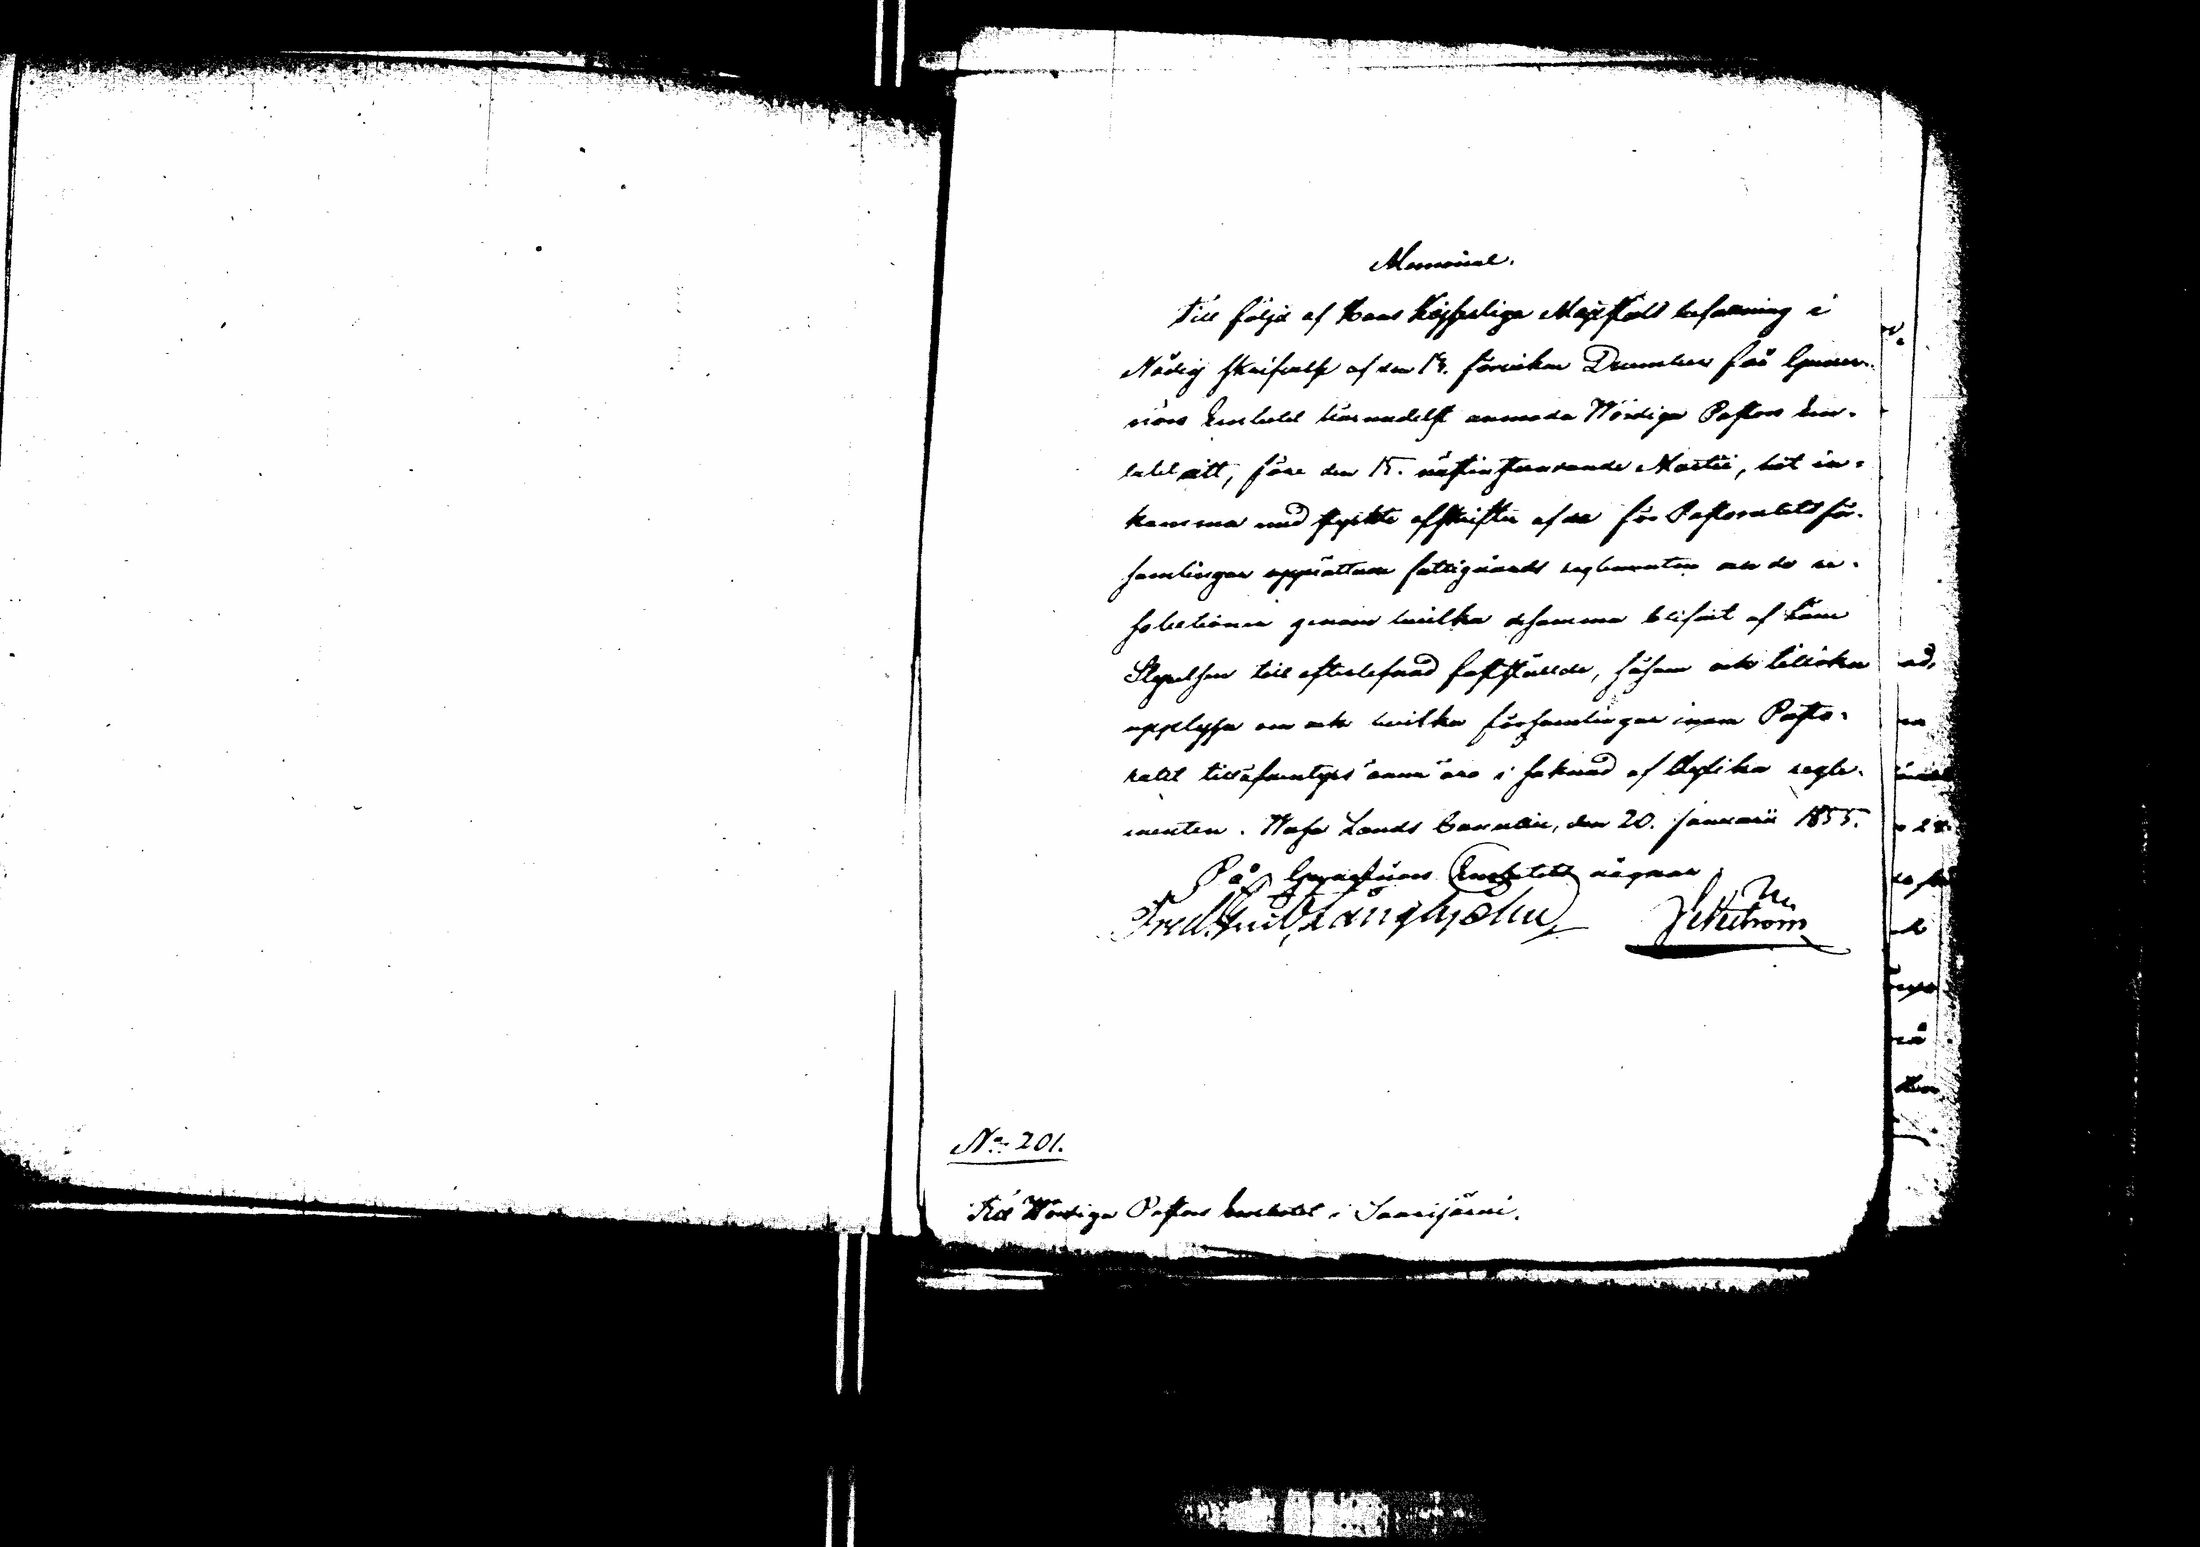 Memorial.
Till följe af Hans Kejserliga Majestäts befallning i
Nådig skrifvelse af den 13. sistvikne December får Guver-
nörs Embetet härmedelst anmoda Wördiga Pastors Em-
betet att, före den 15. nästinstundande Martii, hit in-
komma med styrkte afskrifter af de för Pastoratets för-
samlingar upprättade fattigvårds reglementen och de re-
solutioner genom hvilka desamma blifvit af Läne
Styrelsen till efterlefnad fastställde, såsom ock tillika
upplysa om och hvilka församlingar inom Pasto-
ratet tilläfventyrs ännu äro i saknad af dylika regle-
menten. Wasa Lands Cancellie, den 20. Januarii 1855.
På Guvernörs Embetets vägnar
Långhjelm
No 201.
Till Wördiga Pastors Embetet i Saarijärvi.